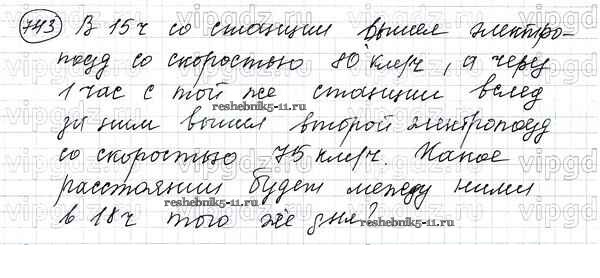 743 В 15 ч со станции вышел электро-
поезд со скоростью 80 км/ч, а через
1 час с той же станции вслед
reshebnik5-11.ru
за ним вышел второй электропоезд
со скоростью 75 км/ч. Какое
расстояние будет между ними
reshebnik5-11.ru
в 18 ч того же дня?